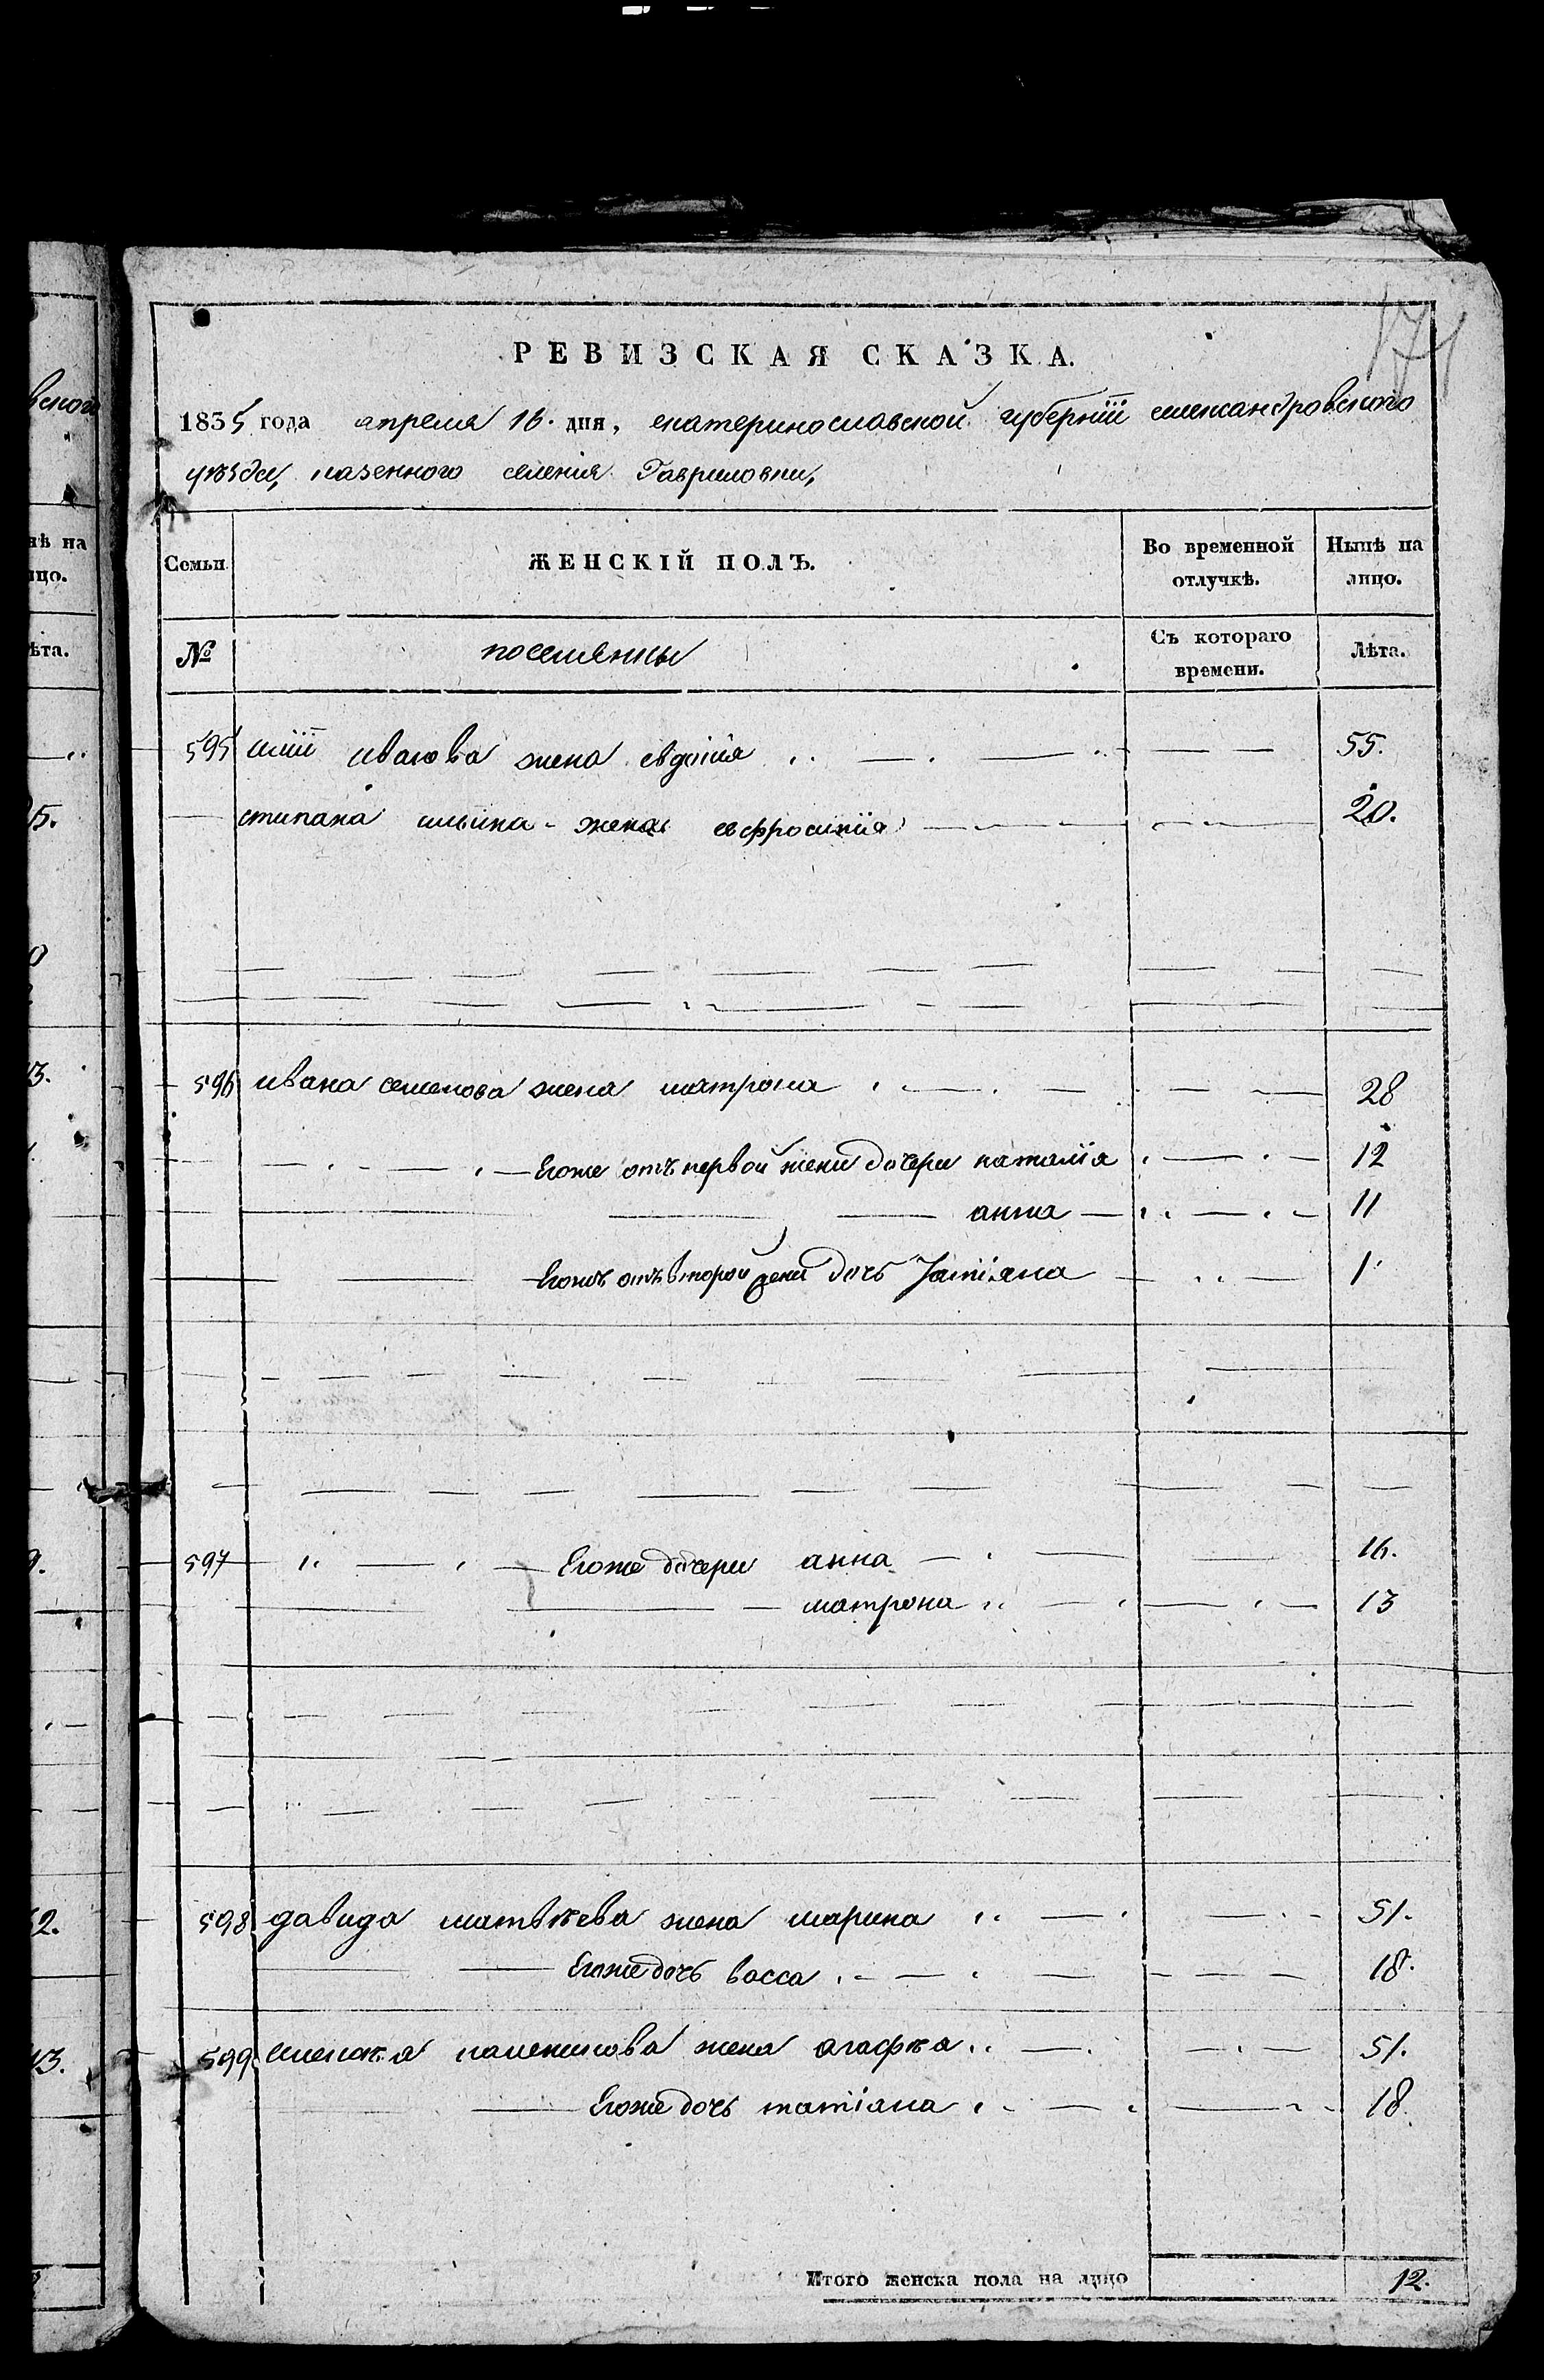 171
РЕВИЗСКАЯ СКАЗКА.
1835 года апреля 16. дня, екатеринославской губернїи александровского
уѣзда, казенного селенія Гавриловки,
Семьи
ЖЕНСКІЙ ПОЛЪ.
Во временной отлучкѣ.
Нынѣ на лицо.
№
поселянки
Съ котораго времени.
Лѣта.
595 илїи иванова жена евдокїя 55.
стипана ильина жена евфросинїя 20.
596 ивана семенова жена матрона 28
Егоже отъ первой жени дочери наталїя 12
анна 11
Егоже отъ второй жени дочь Татїяна 1
597 Егоже дочери анна 16.
матрона 13
598 давида матвѣева жена марина 51.
Егоже дочь васса 18.
599 алексѣя жена агафїя 51.
Егоже дочь татіана 18.
Итого женска пола на лицо 12.
вского
нѣ на
ицо.
ѣта.